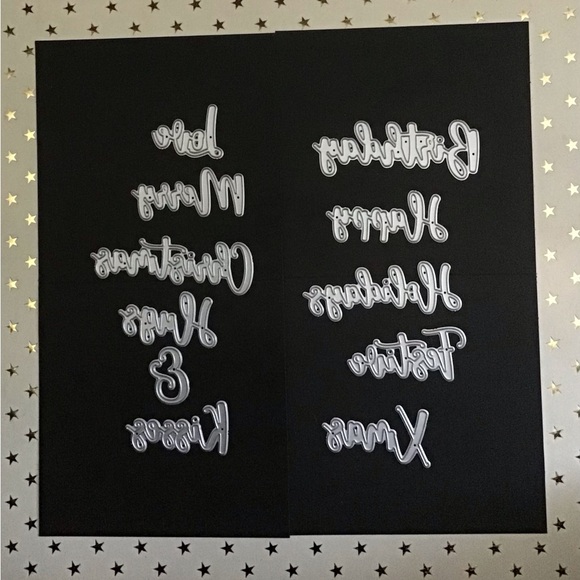 Love
Merry
Christmas
Hugs
&
Kisses
Birthday
Happy
Holidays
Festive
Xmas